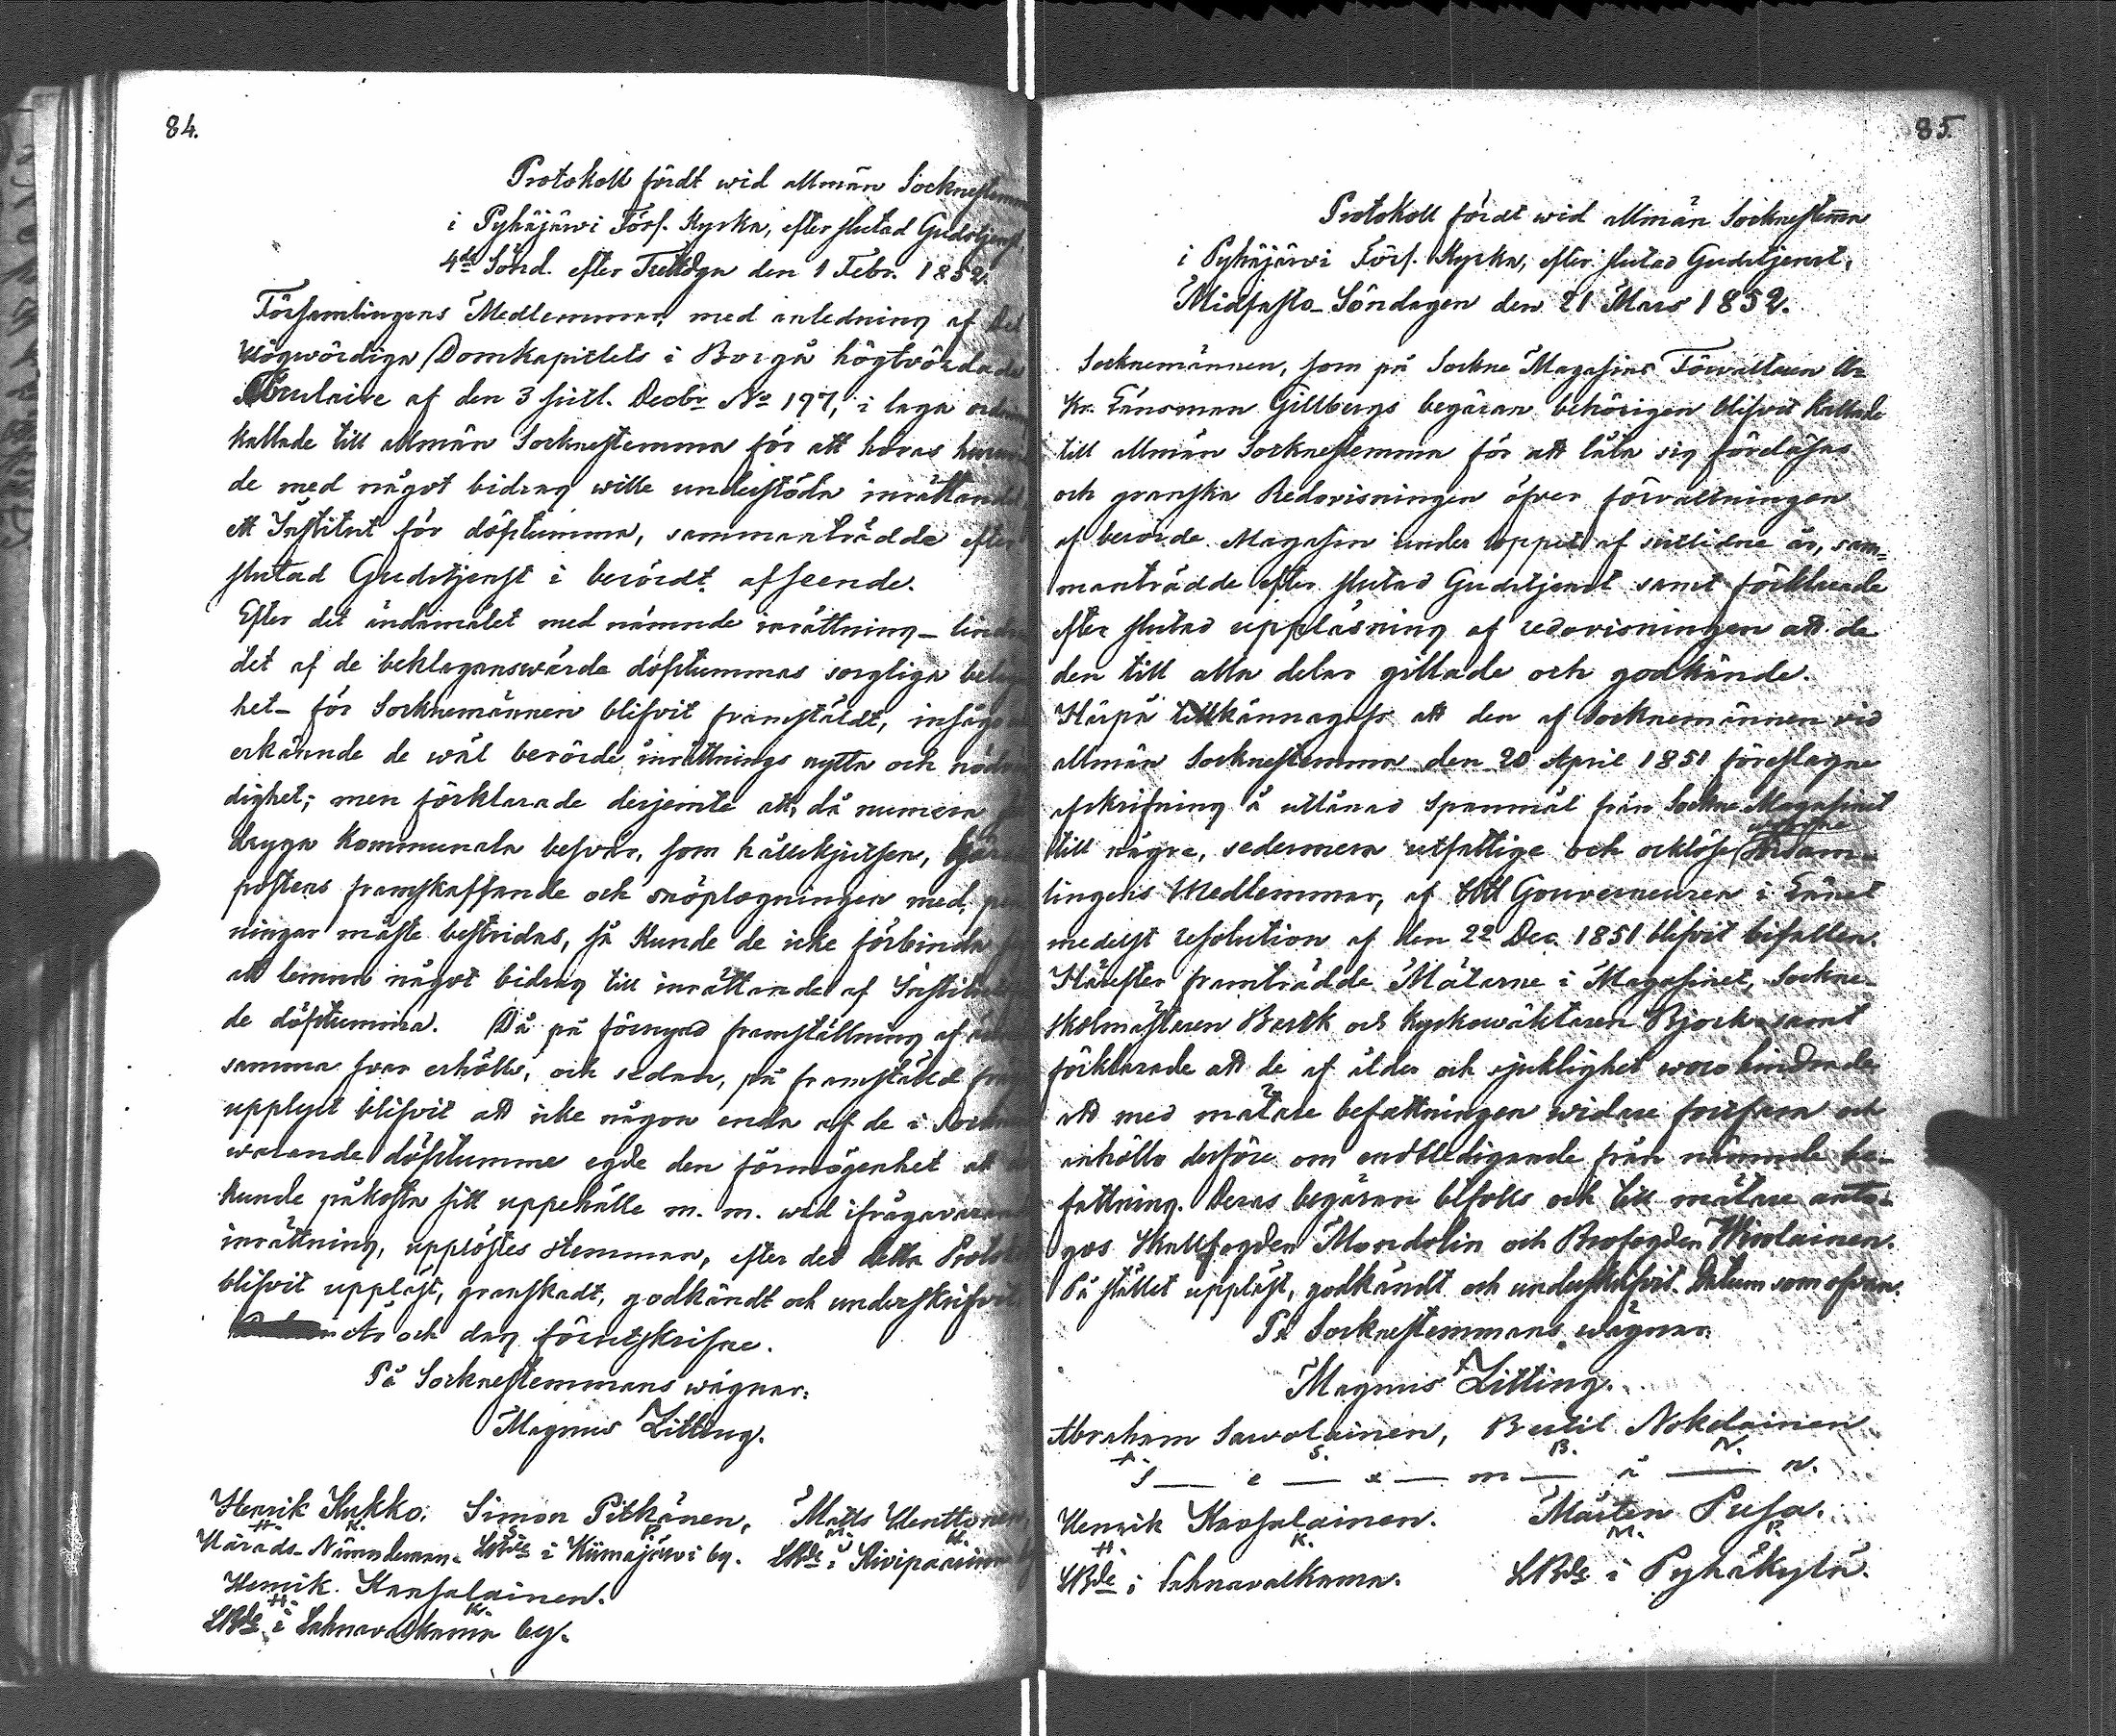 84.
Protokoll fördt wid allmän Sockneſtemm
i Pyhäjärwi Förſ. Kyrka, efter ſlutad Gudstjenſt,
4de Sönd. efter Trettdgn den 1 Febr. 1852.
Förſamlingens Medlemmar, med anledning af Det
Högwördiga Domkapitlets i Borgå högtvördade
Cirulaire af den 3 ſiſtl. Decbr No 197, i laga ordn
kallade till allmän Sockneſtemma för att höras huru
de med något bidrag wille underſtöda inrättandet
ett Inſtitut för döfſtumma, sammanträdde efter
ſlutad Gudstjenſt i berördt afſeende.
Efter det ändamålet med nämnde inrättning _ lindr
det af de beklaganswärda döfſtummas sorgliga beläg
het _ för Socknemännen blifvit framſtäldt, inſågo
erkännde de wäl berörde inrättnings nytta och nödvän
dighet; men förklarade derjemte att, då numera
dryga Kommunala beſvär, ſom hållskjutſen,
poſtens framſkaffande och snöplogningen med pen
ningar måſte beſtridas, ſå kunde de icke förbinda ſig
att lemna något bidrag till inrättande af Inſtitut
de döfſtumma. Då på förnyad framſtällning af
samma ſvar erhölls, och sedan, på framſtälld
upplyſt blifvit att icke någon enda af de i Sockn
warande döfſtumme egde den förmögenhet att
kunde påkoſta ſitt uppehälle m. m. wid ifrågavarand
inrättning, upplöſtes stemman, efter det detta Proto
blifvit uppläſt, granſkadt, godkändt och underſkrifvit.
År och dag förutſkrifne.
På Sockneſtemmans wägnar:
Magnus Litting.
Henrik Kukko, Simon Pitkänen, Matts Henttonen,
H. K. S. P. M. H.
Härads-Nämndeman. LBde i Hiimajärwi by. LBde i Kivipa
Henrik Kaaſalainen.
H. K.
LBde i Lahnavalkama by.
85.
Protokoll fördt wid allmän Sockneſtemma
i Pyhäjärwi Förſ. Kyrka, efter ſlutad Gudstjenſt,
Midfaſto-Söndagen den 21 Mars 1852.
Socknemännen, ſom på Sockne Magaſins Förvaltaren Hr
Kr. Länsman Gillbergs begäran behörigen blifvit kallade
till allmän Sockneſtemma för att låta sig föreläſas
och granſka Redovisningen öfver förvaltningen
af berörde Magaſin under loppet af ſiſtlidne år, sam-
manträdde efter ſlutad Gudstjenſt samt förklarade
efter ſlutad uppläsning af redovisningen att de
den till alla delar gillade och godkände.
Härpå tillkännagafs att den af Socknemännen vid
allmän Sockneſtemma den 20 April 1851 föreſlagne
afskrifning å utlånad spannmål från Sockne Magaſinet
till någre, sedermera utfattige och orklöſe Försam-
lingens Medlemmar, af Gouverneuren i Länet
medelſt reſolution af den 22 Dec. 1851 blifvit bifallen.
Härefter framträdde Mätarne i Magaſinet, Sockne-
skolmäſtaren Berth och Kyrkowäktaren Björk samt
förklarade att de af ålder och sjuklighet woro hindrade
att med mätare befattningen widare fortfara och
anhöllo derföre om entledigande från nämnde be-
fattning. Deras begäran bifölls och till mätare anto-
gos Skallfogden Mandolin och Brofogden Nikolainen.
På ſtället uppläſt, godkändt och underſkrifvit. Datum som ofvan.
På Sockneſtemmans wägnar:
Magnus Litting.
Abraham Sawolainen, Bertil Nokelainen
A. S. B. N.
S — e — x — m — ä — n.
Henrik Kaaſalainen. Mårten Puſa.
H. K. M. P.
LBde i Lahnavalkama. LBde i Pyhäkylä.